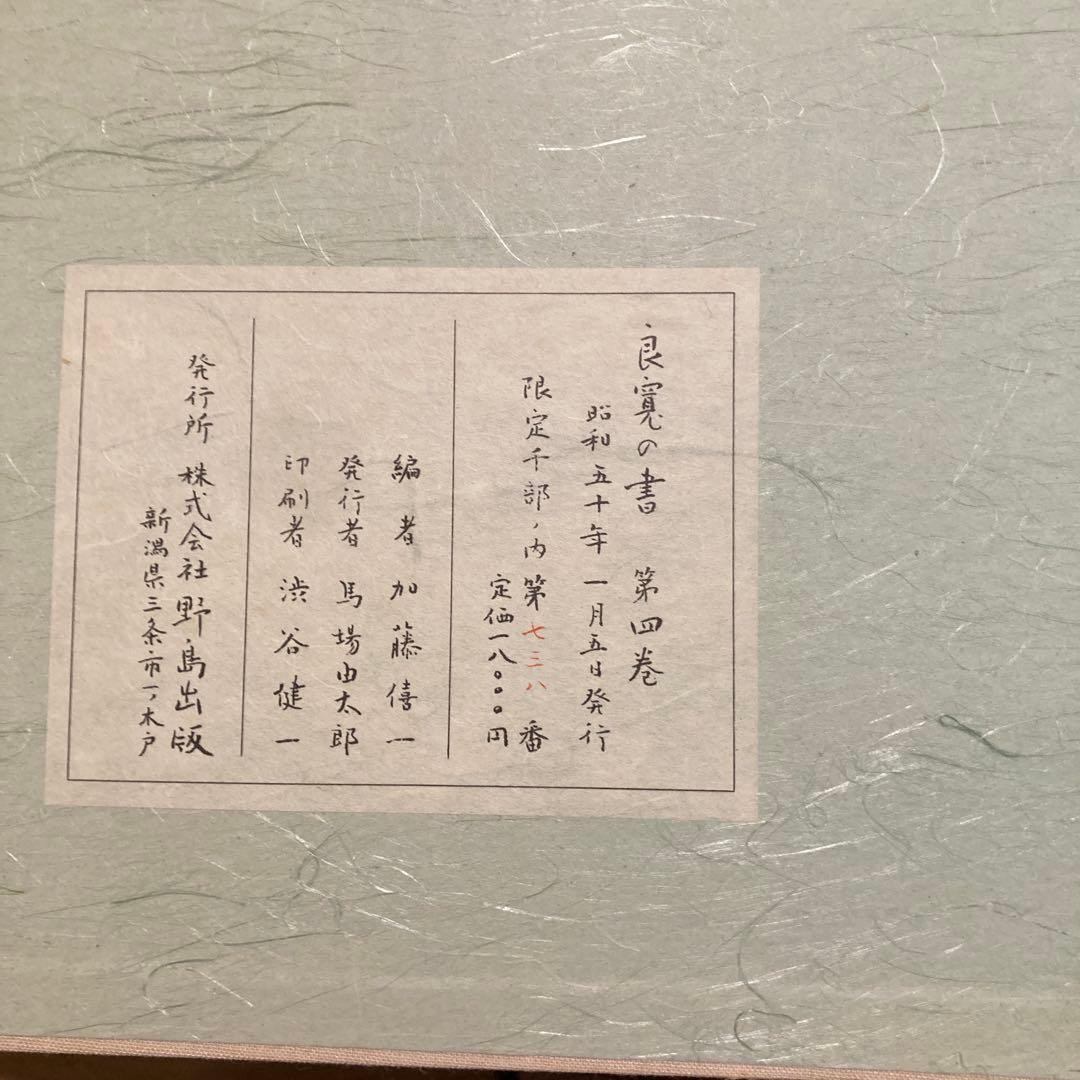 良寛の書 第四巻
昭和五十年一月五日発行
限定千部ノ内第七三八番
定価一八〇〇〇円
編者 加藤僖一
発行者 馬場由太郎
印刷者 渋谷健一
発行所 株式会社野島出版
新潟県三条市一ノ木戸